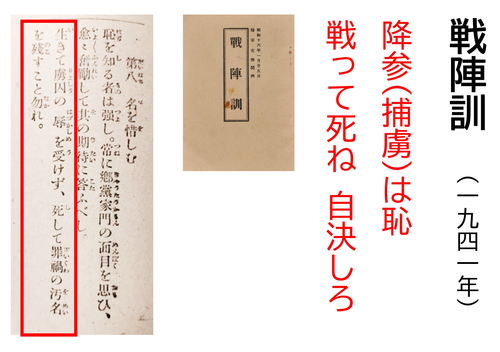 戦陣訓
（一九四一年）
降参(捕虜)は恥
戦って死ね 自決しろ
戰陣訓
第八 名を惜しむ
恥を知る者は强し。常に鄕黨家門の面目を思ひ、
愈々奮勵して其の期待に答ふべし。
生きて虜囚の辱を受けず、死して罪禍の汚名
を殘すこと勿れ。